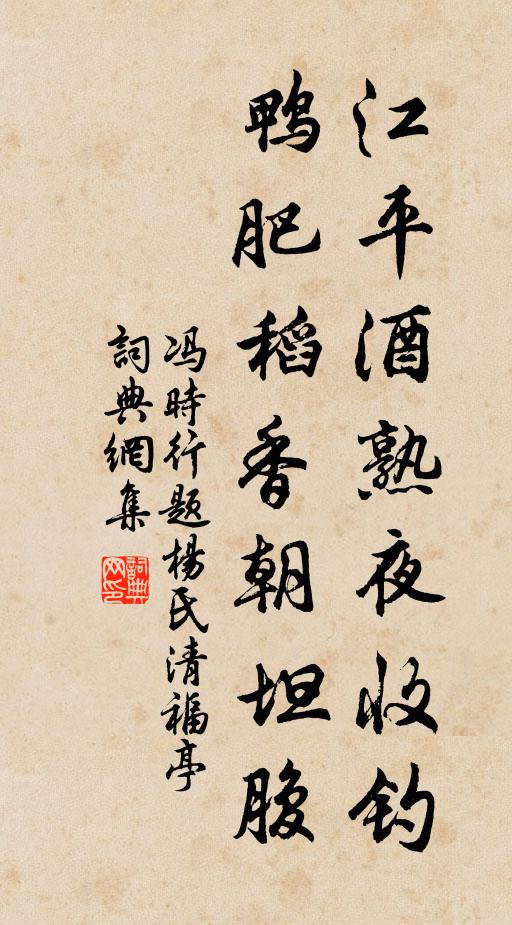 江平酒熟夜收钓
鸭肥稻香朝坦腹
冯時行题楊氏清福亭
詞典網集
詞典网印